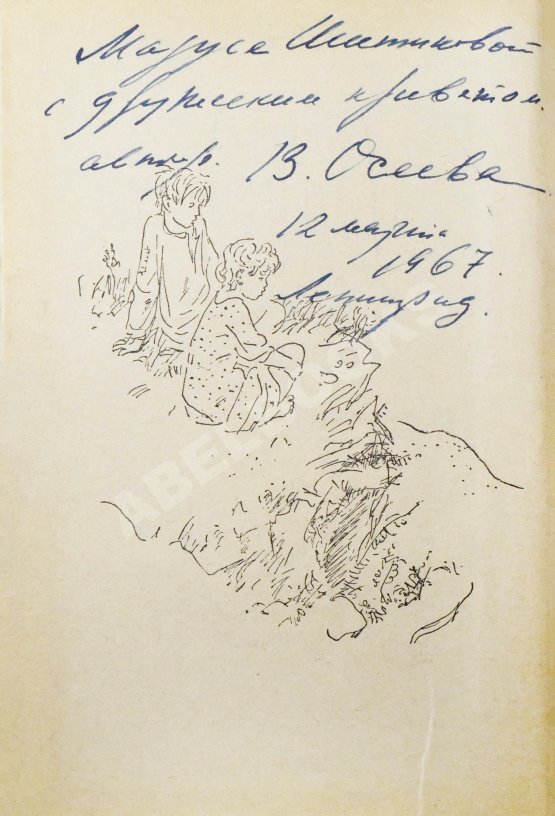 Марусе Шитиковой
с дружеским приветом.
автор. В. Осеева
12 марта
1967.
Ленинград.
ABEL BOOKS